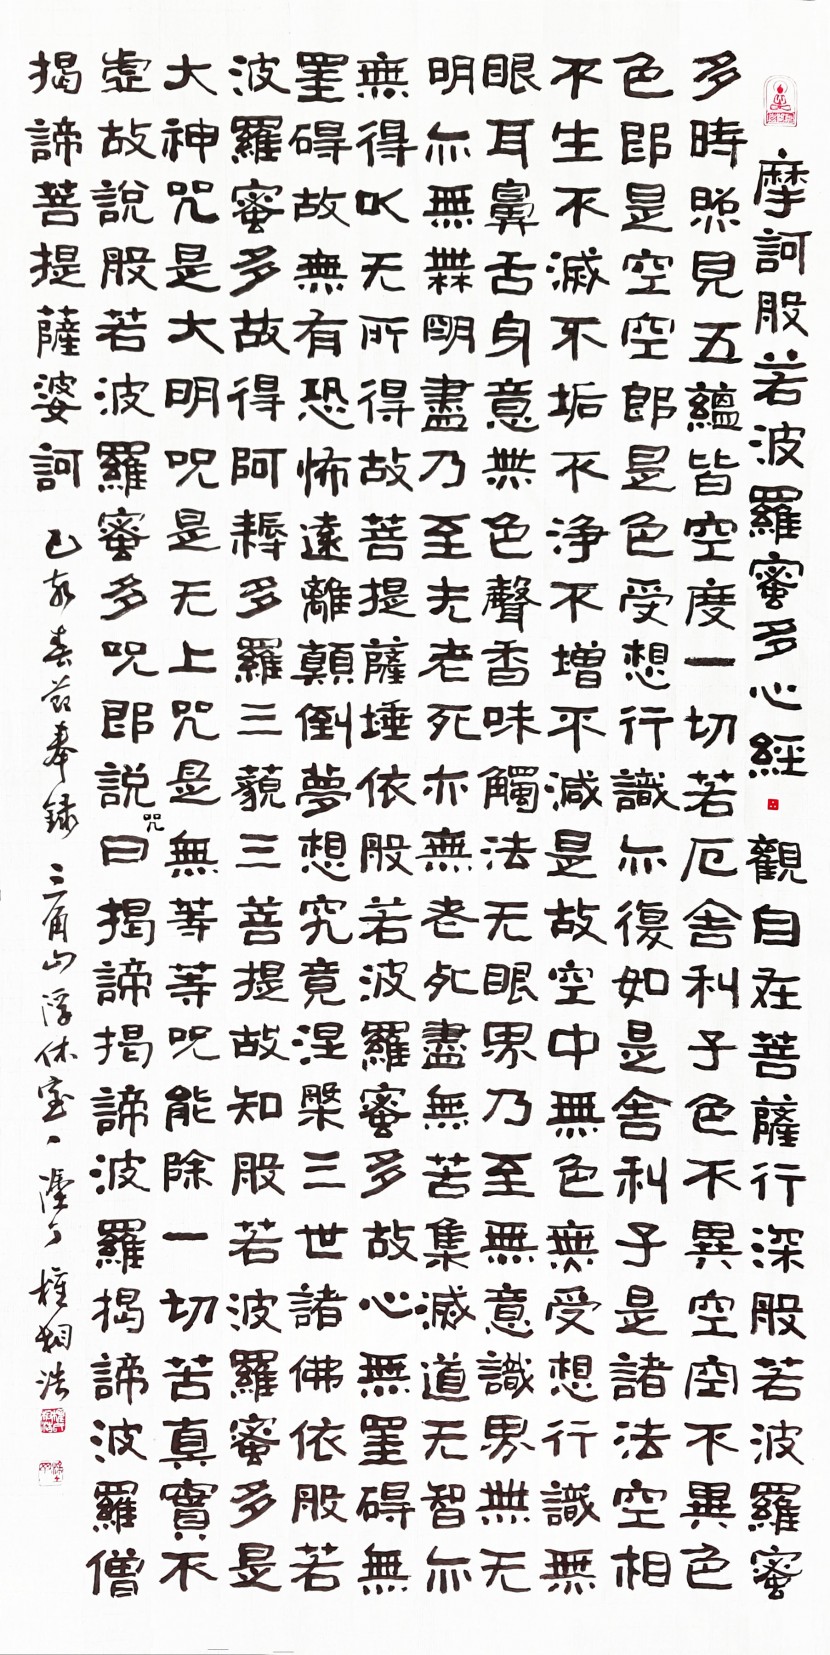 摩訶般若波羅蜜多心經 觀自在菩薩行深般若波羅蜜
多時照見五蘊皆空度一切若厄舍利子色不異空空不異色
色即是空空即是色受想行識亦復如是舍利子是諸法空相
不生不滅不垢不淨不增不減是故空中無色無受想行識無
眼耳鼻舌身意無色聲香味觸法无眼界乃至無意識界無无
明亦無無明盡乃至无老死亦無老死盡無苦集滅道无智亦
無得以无所得故菩提薩埵依般若波羅蜜多故心無罣碍無
罣碍故無有恐怖遠離顛倒夢想究竟涅槃三世諸佛依般若
波羅蜜多故得阿耨多羅三藐三菩提故知般若波羅蜜多是
大神咒是大明呪是无上咒是無等等呪能除一切苦真實不
虛故說般若波羅蜜多呪即說咒曰揭諦揭諦波羅揭諦波羅僧
揭諦菩提薩婆訶 己亥春奉錄 三角山浮休室 權相浩